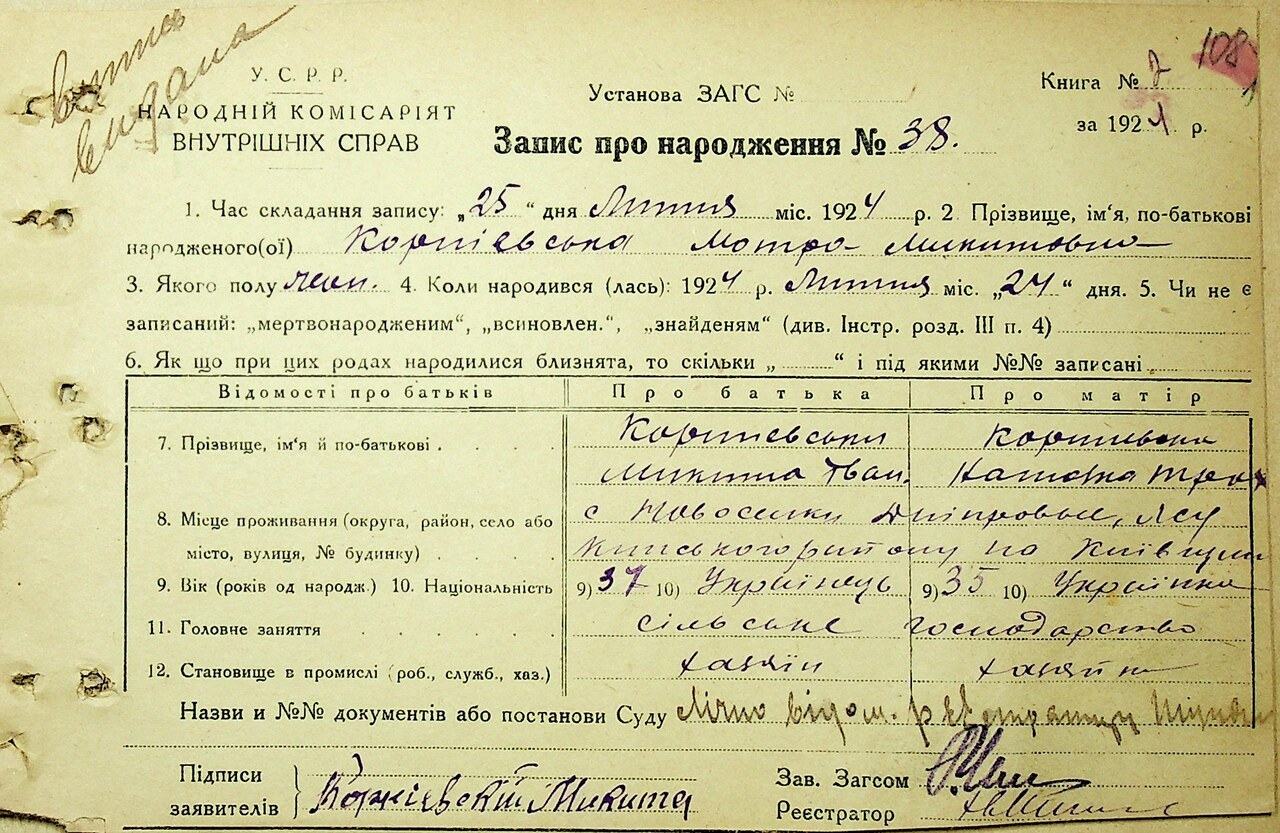 витяг
видана
108
У. С. Р. Р.
НАРОДНІЙ КОМІСАРІЯТ
ВНУТРІШНІХ СПРАВ
Установа ЗАГС №
Книга № 2
за 1924 р.
Запис про народження № 38.
1. Час складання запису: „25“ дня Лютня міс. 1924 р. 2. Прізвище, ім'я, по-батькові
народженого(ої) Коржієвська Мотра Микитовна
3. Якого полу жен. 4. Коли народився (лась): 1924 р. Лютня міс. „24“ дня. 5. Чи не є
записаний: „мертвонародженим“, „всиновлен.“, „знайденям“ (див. Інстр. розд. III п. 4)
6. Як що при цих родах народилися близнята, то скільки „ “ і під якими №№ записані
Відомості про батьків Про батька Про матір
7. Прізвище, ім'я й по-батькові Коржиевськи Коржиевска
Микита Іван. Наталка
8. Місце проживання (округа, район, село або с Новоселки Дніпровые,
місто, вулиця, № будинку) району на Київщині
9. Вік (років од народж.) 10. Національність 9) 37 10) Українець 9) 35 10) Українка
11. Головне заняття сільське господарство
12. Становище в промислі (роб., служб., хаз.) хазяїн хазяйка
Назви и №№ документів або постанови Суду Лічно відом.
Підписи
заявителів Коржіевский Микита
Зав. Загсом
Реєстратор